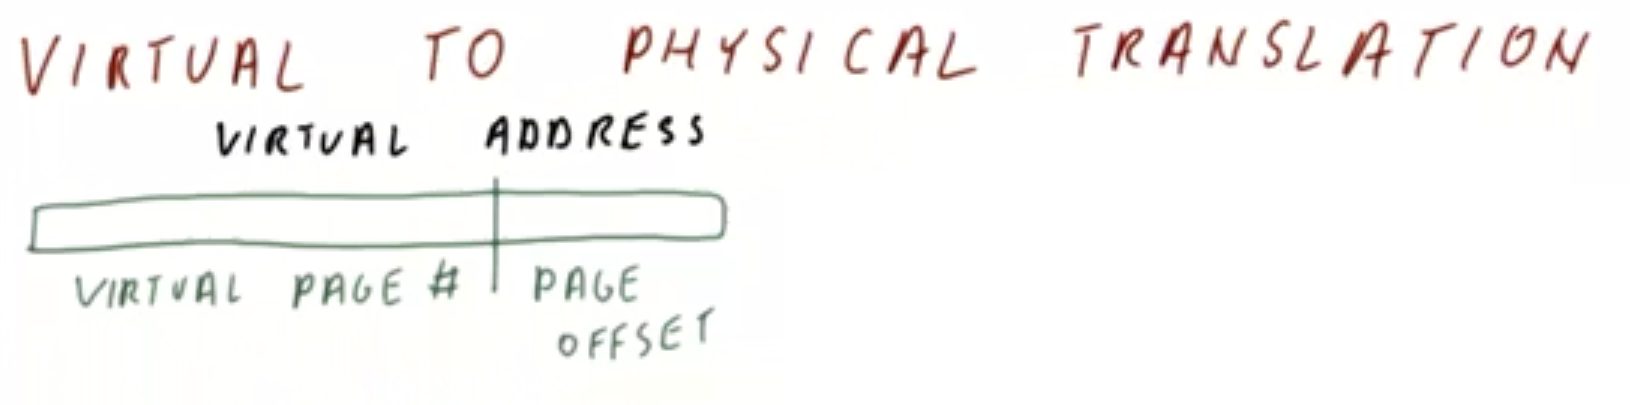 VIRTUAL TO PHYSICAL TRANSLATION
VIRTUAL ADDRESS
VIRTUAL PAGE # PAGE
OFFSET